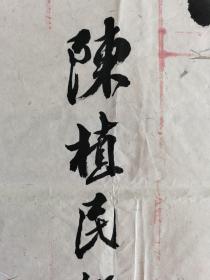 陳植民